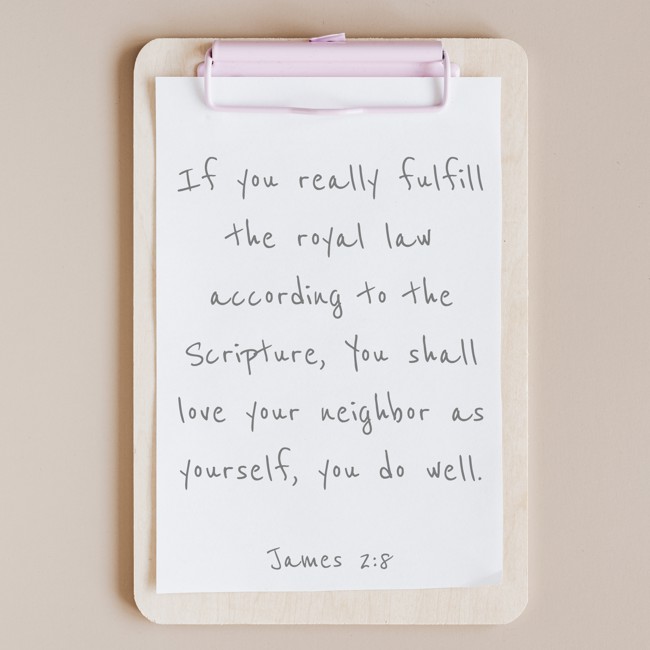 If you really fulfill
the royal law
according to the
Scripture, You shall
love your neighbor as
yourself, you do well.
James 2:8